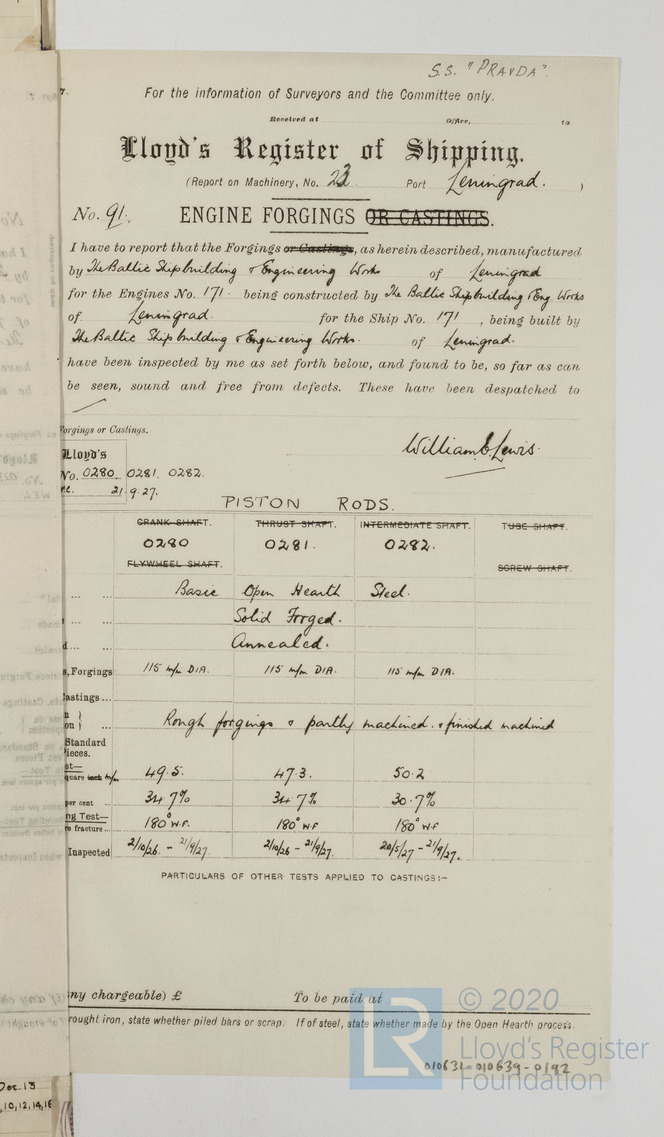 S.S. "PRAVDA".
7.
For the information of Surveyors and the Committee only.
Received at Office, 19
Lloyd's Register of Shipping.
(Report on Machinery, No. 23 Port Leningrad. )
No. 91. ENGINE FORGINGS OR CASTINGS.
I have to report that the Forgings or Castings, as herein described, manufactured
by The Baltic Shipbuilding & Engineering Works of Leningrad
for the Engines No. 171 being constructed by The Baltic Shipbuilding & Eng. Works
of Leningrad. for the Ship No. 171 , being built by
The Baltic Shipbuilding & Engineering Works. of Leningrad.
have been inspected by me as set forth below, and found to be, so far as can
be seen, sound and free from defects. These have been despatched to
Forgings or Castings.
William E Lewis.
Lloyd's
No. 0280. 0281. 0282.
21.9.27.
PISTON RODS.
CRANK SHAFT. THRUST SHAFT. INTERMEDIATE SHAFT. TUBE SHAFT.
0280 0281. 0282.
FLYWHEEL SHAFT. SCREW SHAFT.
Basic Open Hearth Steel.
Solid Forged.
Annealed.
s, Forgings 115 m/m DIA. 115 m/m DIA. 115 m/m DIA.
Castings ...
on } ... Rough forgings & partly machined. & finished machined
Standard
ieces.
st—
quare inch m/m 49.5. 47.3. 50.2
per cent ... 34.7% 34.7% 30.7%
ng Test—
re fracture ... 180° W.F. 180° W.F 180° W.F
Inspected 2/10/26. - 21/9/27. 2/10/26 - 21/9/27. 20/5/27 - 21/9/27.
PARTICULARS OF OTHER TESTS APPLIED TO CASTINGS:—
ny chargeable) £ To be paid at
rought iron, state whether piled bars or scrap. If of steel, state whether made by the Open Hearth process.
LR © 2020
Lloyd's Register
Foundation
010631-010639-0192
Dec. 13
, 10, 12, 14, 16